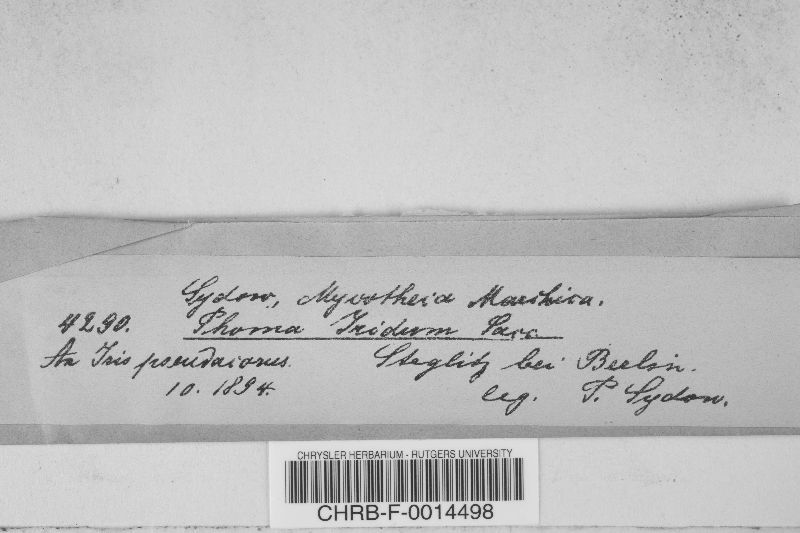 Sydow, Mycotheca Marchica.
4290. Phoma Iridum Sacc
An Iris pseudacorus. Steglitz bei Berlin.
10. 1894. leg. P. Sydow.
CHRYSLER HERBARIUM - RUTGERS UNIVERSITY
CHRB-F-0014498